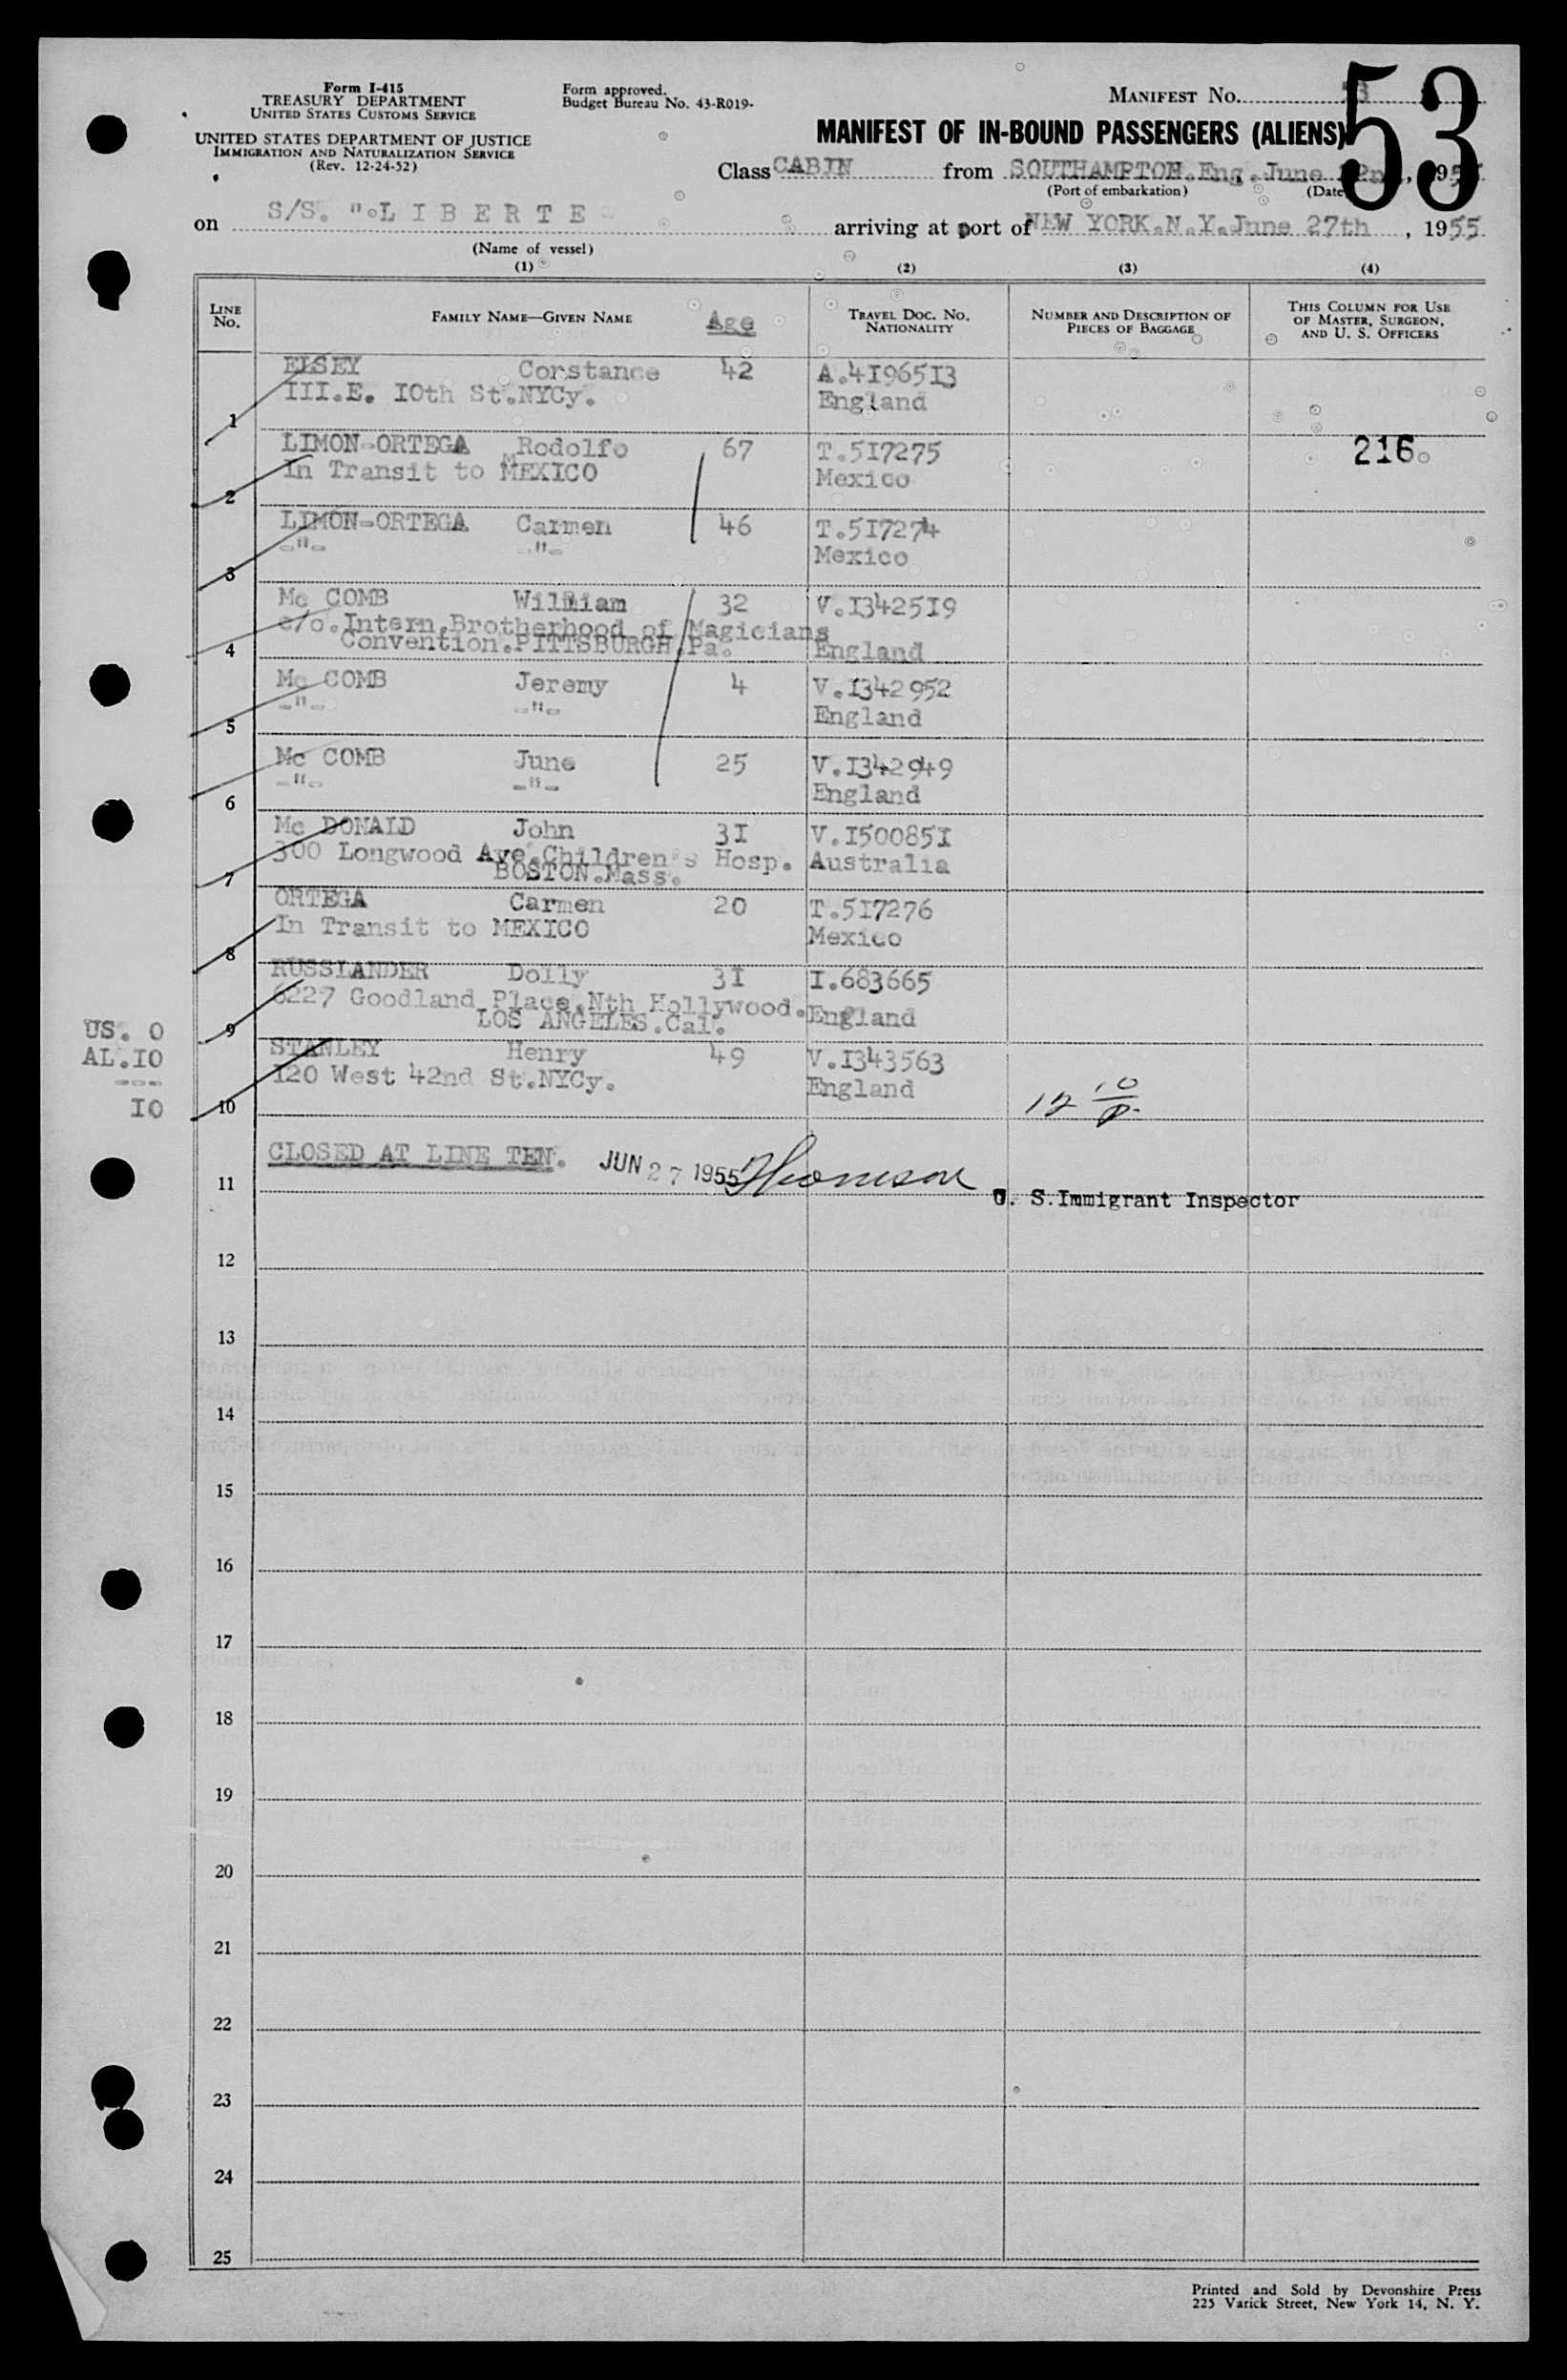 Form I-415
TREASURY DEPARTMENT
UNITED STATES CUSTOMS SERVICE
UNITED STATES DEPARTMENT OF JUSTICE
IMMIGRATION AND NATURALIZATION SERVICE
(Rev. 12-24-52)
Form approved.
Budget Bureau No. 43-R019-
MANIFEST No.
53
MANIFEST OF IN-BOUND PASSENGERS (ALIENS)
Class CABIN from SOUTHAMPTON.Eng. June , 1955
(Port of embarkation) (Date
on S/S. "LIBERTE arriving at port of NEW YORK.N.Y.June 27th , 1955
(Name of vessel)
(1) (2) (3) (4)
LINE No. FAMILY NAME—GIVEN NAME Age TRAVEL DOC. No. NATIONALITY NUMBER AND DESCRIPTION OF PIECES OF BAGGAGE THIS COLUMN FOR USE OF MASTER, SURGEON, AND U. S. OFFICERS
ELSEY Constance 42 A.4I965I3
III.E. IOth St.NYCy. England
1
LIMON-ORTEGA Rodolfo 67 T.5I7275 216
In Transit to MEXICO Mexico
2
LIMON-ORTEGA Carmen 46 T.5I7274
-"- -"- Mexico
3
Mc COMB William 32 V.I3425I9
c/o.Intern.Brotherhood of Magicians
Convention.PITTSBURGH.Pa. England
4
Mc COMB Jeremy 4 V.I342952
-"- -"- England
5
Mc COMB June 25 V.I342949
-"- -"- England
6
Mc DONALD John 3I V.I50085I
300 Longwood Ave.Children's Hosp. Australia
BOSTON.Mass.
7
ORTEGA Carmen 20 T.5I7276
In Transit to MEXICO Mexico
8
RUSSLANDER Dolly 3I I.683665
6227 Goodland Place.Nth Hollywood. England
LOS ANGELES.Cal.
9
US. 0
AL.IO
---
IO
STANLEY Henry 49 V.I343563
I20 West 42nd St.NYCy. England
10
12
CLOSED AT LINE TEN. JUN 27 1955
11
U. S.Immigrant Inspector
12
13
14
15
16
17
18
19
20
21
22
23
24
25
Printed and Sold by Devonshire Press
225 Varick Street, New York 14, N. Y.